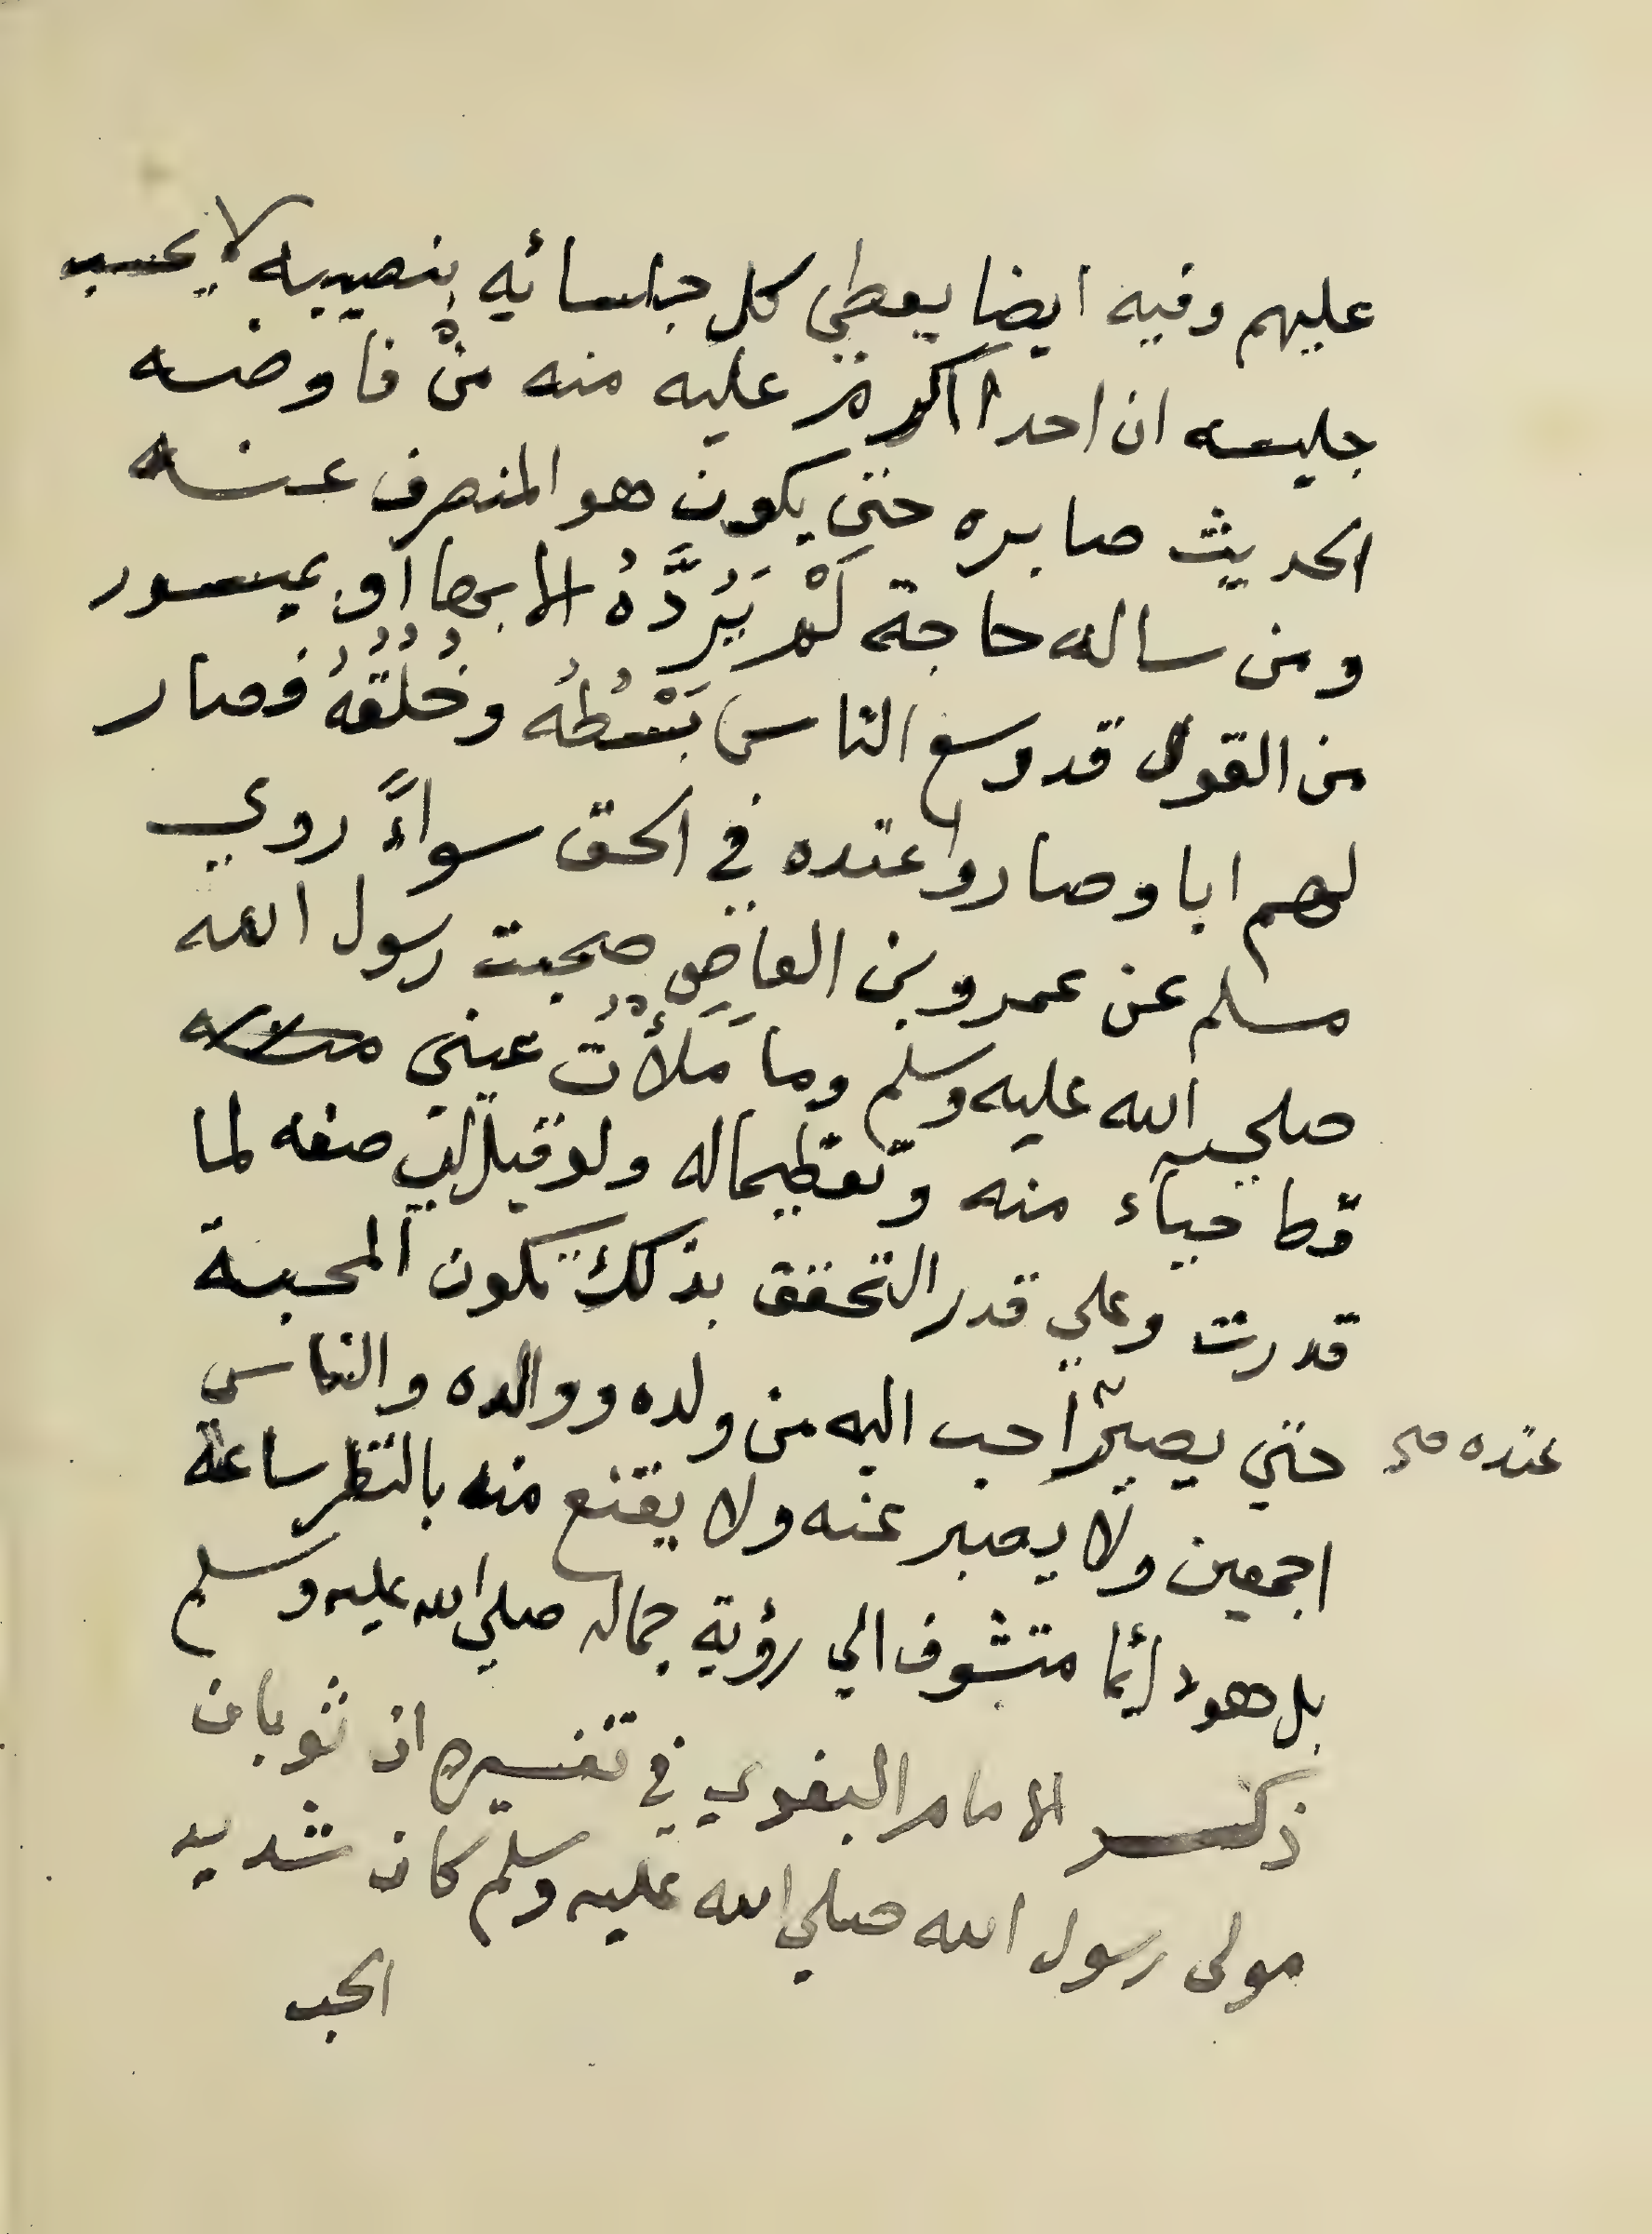 عليهم وفيه ايضا يعطي كل جلسائه بنصيبه لا يحسب
جليسه ان احدا اكرم عليه منه منْ فاوضه
الحديث صابره حتى يكون هو المنصرف عنه
ومن ساله حاجة لَمْ يَرُدَّهُ الا بها او بميسور
من القول قد وسع الناس بَسْطُهُ وخُلُقُهُ فصار
لهم ابا وصاروا عنده في الحق سواءً روي
مسلم عن عمرو بن العاص صحبت رسول الله
صلى الله عليه وسلم وما مَلَأْتُ عيني منه
قط حياء منه وتعظيما له ولو قيل لي صفه لما
قدرت وعلي قدر التحقق بذلك تكون المحبة
حتي يصير احب اليه من ولده ووالده والناس
عنده صح
اجمعين ولا يصبر عنه ولا يقنع منه بالنظر ساعة
بل هو دائما متشوف الي رؤية جماله صلي الله عليه وسلم
ذكر الامام البغوي في تفسيره ان ثوبان
مولى رسول الله صلي الله عليه وسلم كان شديد
الحب